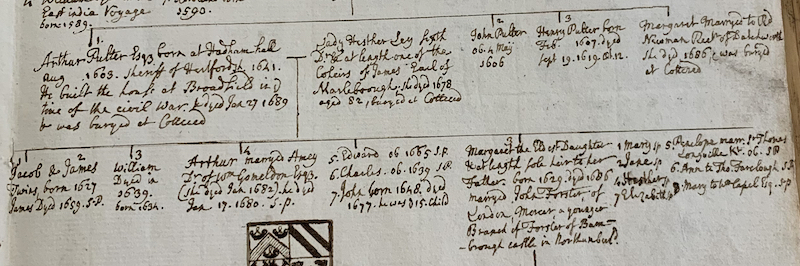 East india Voyage
1590.
born 1589.
1.
Arthur Pulter Esq born at Hadham hall
Aug 1603. Sheriff of Hertfordsh. 1641.
He built the house at Broadfield in ye
time of the civil war. & dyed Jan 27 1689
he was buryed at Cottered
Lady Hesther Ley sixth
Dr. & at length one of the
Coheirs of James Earl of
Marleborough. she dyed 1678
aged 82, buryed at Cottered
2
John Pulter
06. 4 Maij
1606
3
Henry Pulter born
Feb. 1607. dyed
Sept 19. 1619. Æt. 12.
Margaret Marryed to Rd
Nieman Rect of
She dyed 1686 & was buryed
at Cottered
2
Jacob & James
Twins, born 1627
James Dyed 1659. S.P.
3
William
Dyed in
1639.
born 1634.
4
Arthur marryed Amey
Dr of Tho Gomeldon Esq.
(she dyed Jan 1682) he dyed
Jan 17. 1680. S.P.
5. Edward ob 1665 S.P.
6. Charles. ob. 1639 S.P.
7. John born 1648. dyed
1677. he was ye 15. Child
3
Margaret the Eldest Daughter
& at length sole heir to her
Father. born 1629. dyed 1686
marryed John Forster, of
London, Mercer a younger
Branch of Forster of Bam-
-brough castle in Northumbd.
1 Mary sp
2 Jane sp
4 Hesther sp
7 Elizabeth sp
5. Penelope marr. to Thomas
Longville Kt. ob. S.P.
6. Ann to Tho Fairclough S.P.
8 Mary to Wm Capel Esq. S.P